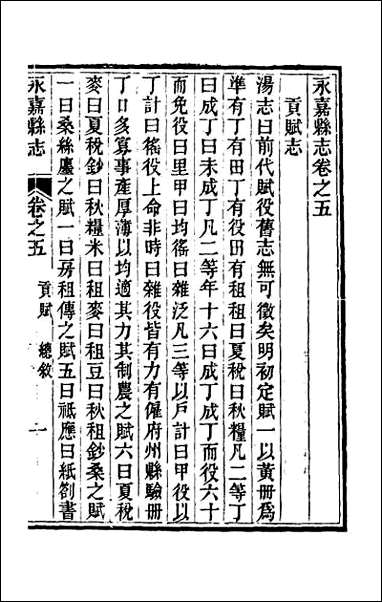 永嘉縣志卷之五
貢賦志
湯志曰前代賦役舊志無可徵矣明初定賦一以黃冊爲
準有丁有田丁有役田有租租曰夏稅曰秋糧凡二等丁
曰成丁曰未成丁凡二等年十六曰成丁成丁而役六十
而免役曰里甲曰均徭曰雜泛凡三等以戶計曰甲役以
丁計曰徭役上命非時曰雜役皆有力有僱府州縣驗冊
丁口多寡事產厚薄以均適其力其制農之賦六日夏稅
麥曰夏稅鈔曰秋糧米曰租麥曰租豆曰秋租鈔桑之賦
一曰桑絲廛之賦一曰房租傳之賦五曰祗應曰紙劄書
永嘉縣志
卷之五
貢賦 總敘
一